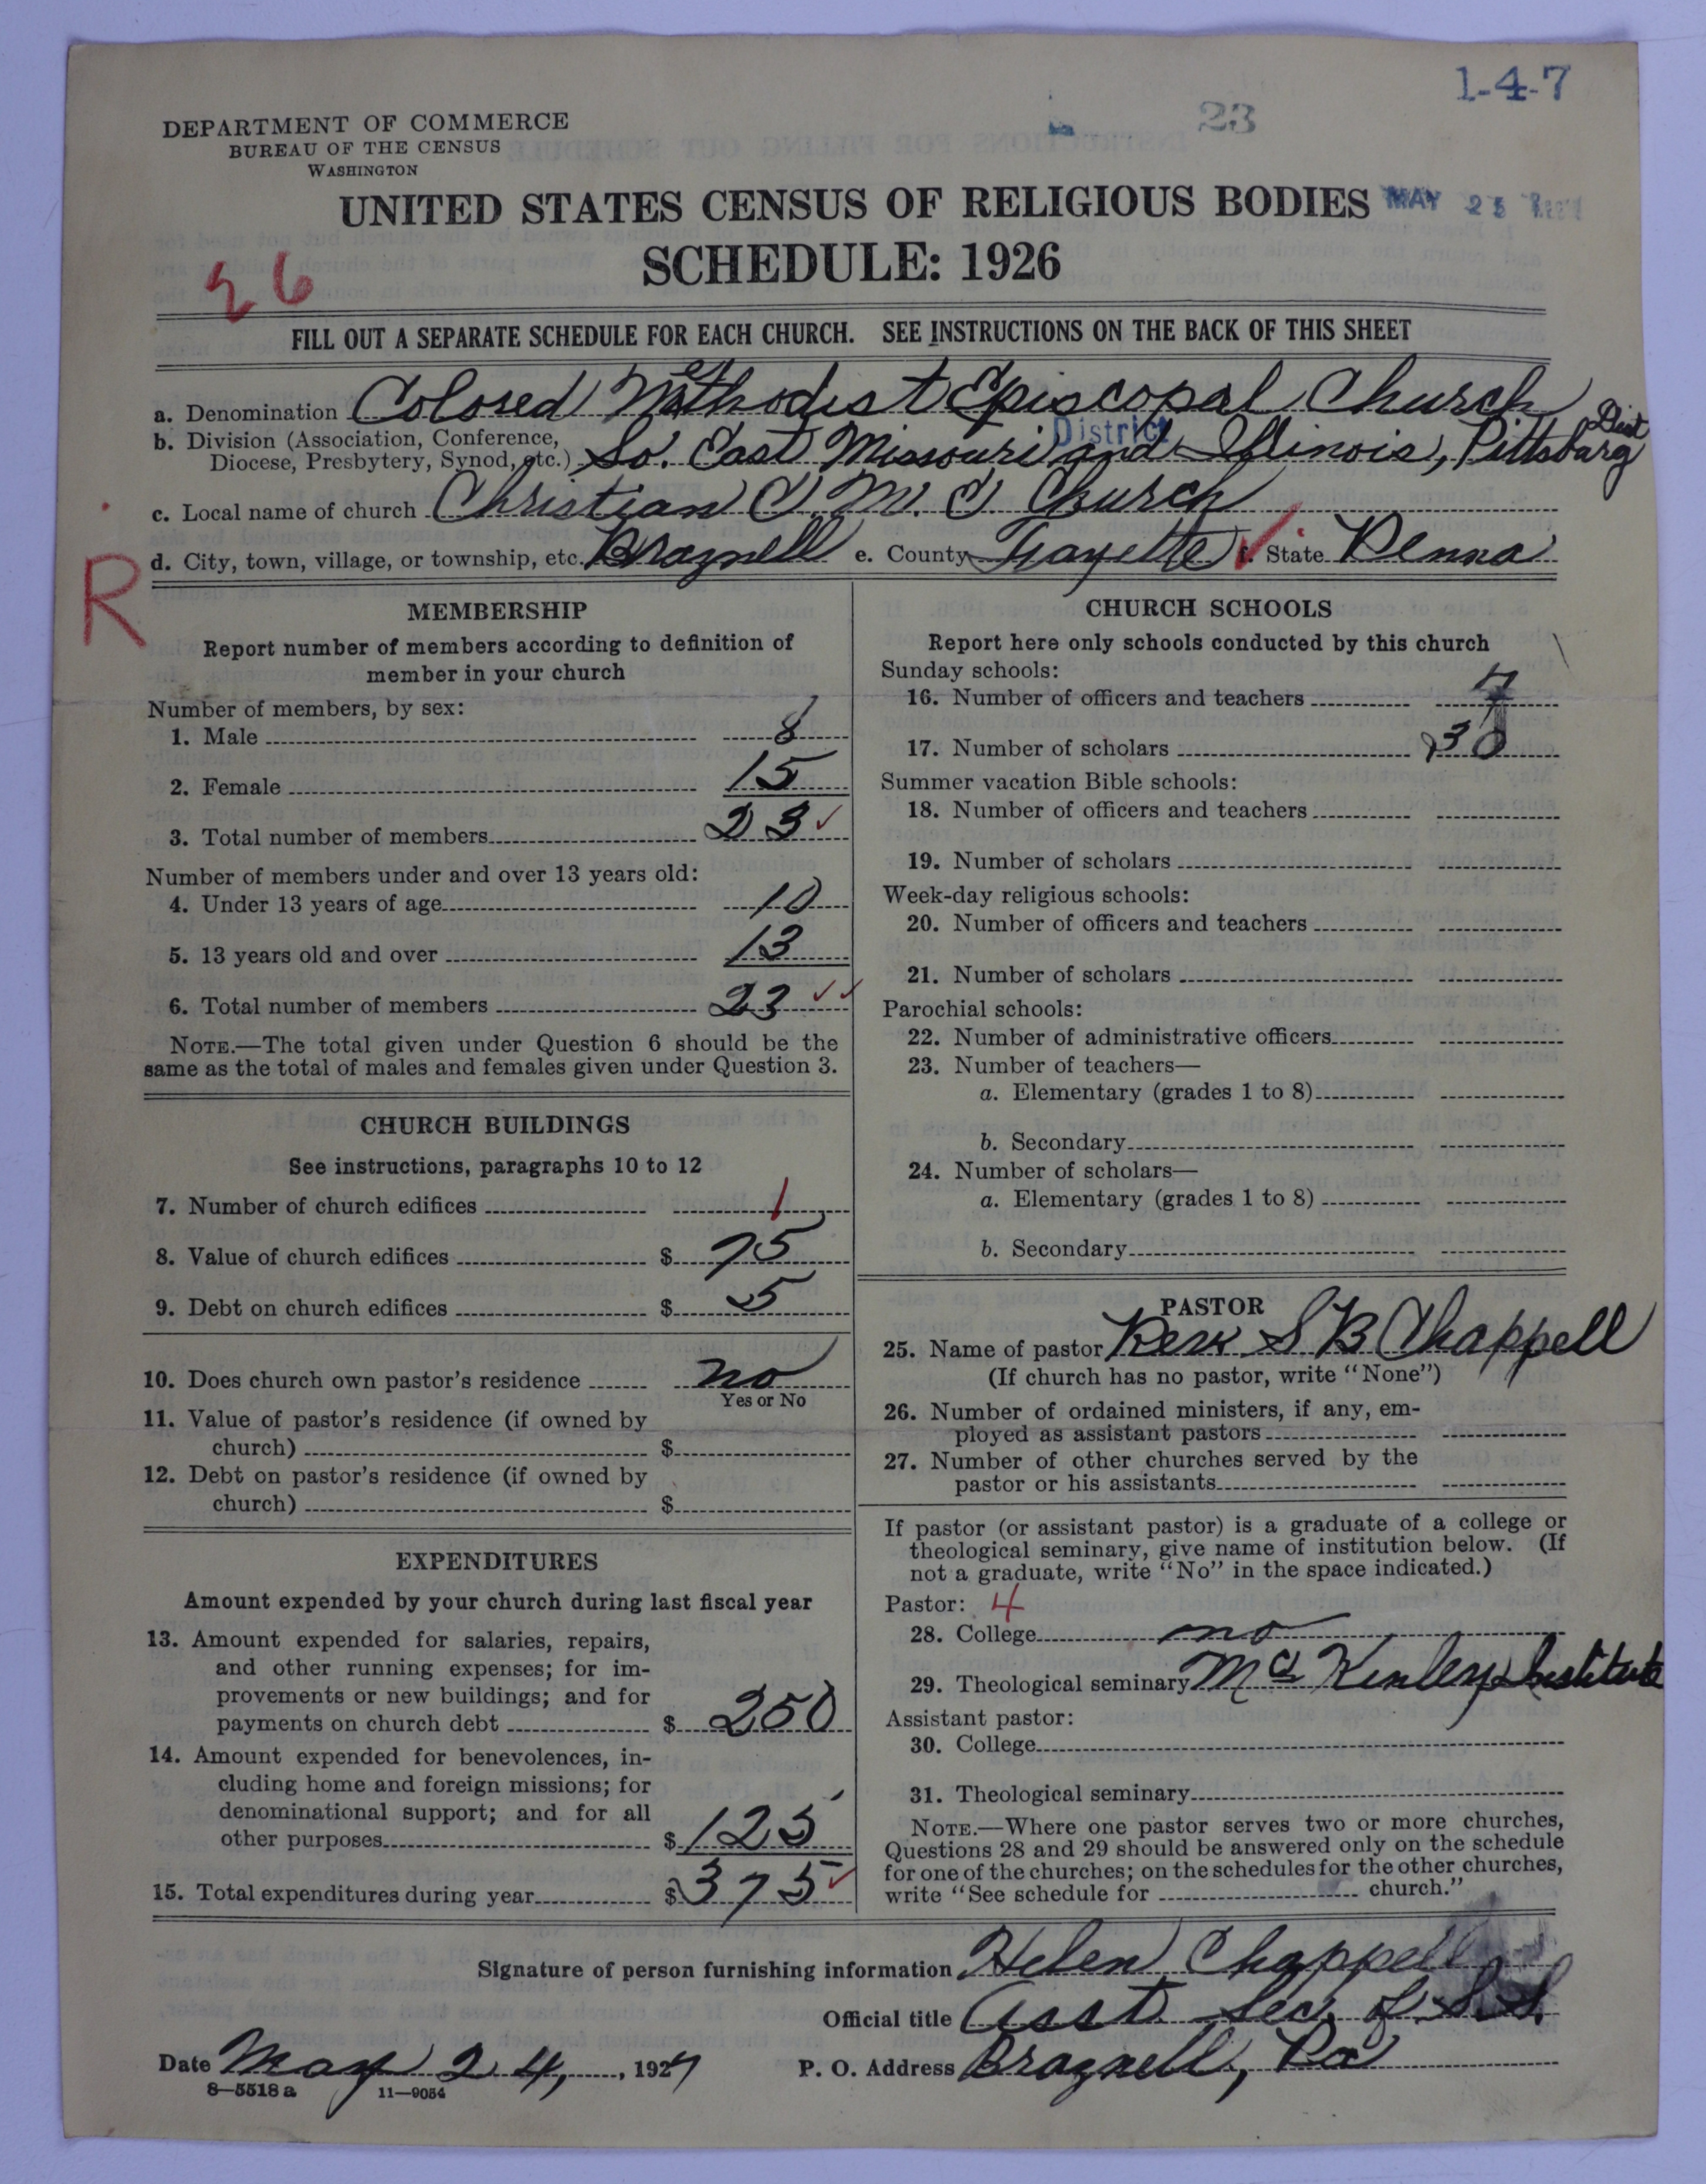 1-4-7
23
DEPARTMENT OF COMMERCE
BUREAU OF THE CENSUS
WASHINGTON
UNITED STATES CENSUS OF RELIGIOUS BODIES
MAY 25
SCHEDULE: 1926
26
FILL OUT A SEPARATE SCHEDULE FOR EACH CHURCH. SEE INSTRUCTIONS ON THE BACK OF THIS SHEET
a. Denomination Colored Methodist Episcopal Church
b. Division (Association, Conference, Diocese, Presbytery, Synod, etc.) So. East Missouri and Illinois, Pittsburg Dist
District
c. Local name of church Christian C. M. E Church
d. City, town, village, or township, etc. Braznell e. County Fayette f. State Penna
R
MEMBERSHIP
Report number of members according to definition of
member in your church
Number of members, by sex:
1. Male 8
2. Female 15
3. Total number of members 23 ✓
Number of members under and over 13 years old:
4. Under 13 years of age 10
5. 13 years old and over 13
6. Total number of members 23 ✓✓
NOTE.—The total given under Question 6 should be the
same as the total of males and females given under Question 3.
CHURCH BUILDINGS
See instructions, paragraphs 10 to 12
7. Number of church edifices 1
8. Value of church edifices $ 75
9. Debt on church edifices $ 5
10. Does church own pastor's residence no
Yes or No
11. Value of pastor's residence (if owned by
church) $
12. Debt on pastor's residence (if owned by
church) $
EXPENDITURES
Amount expended by your church during last fiscal year
13. Amount expended for salaries, repairs,
and other running expenses; for im-
provements or new buildings; and for
payments on church debt $ 250
14. Amount expended for benevolences, in-
cluding home and foreign missions; for
denominational support; and for all
other purposes $ 125
15. Total expenditures during year $ 375 ✓
CHURCH SCHOOLS
Report here only schools conducted by this church
Sunday schools:
16. Number of officers and teachers 7
17. Number of scholars 30
Summer vacation Bible schools:
18. Number of officers and teachers
19. Number of scholars
Week-day religious schools:
20. Number of officers and teachers
21. Number of scholars
Parochial schools:
22. Number of administrative officers
23. Number of teachers—
a. Elementary (grades 1 to 8)
b. Secondary
24. Number of scholars—
a. Elementary (grades 1 to 8)
b. Secondary
PASTOR
25. Name of pastor Rev. S B Chappell
(If church has no pastor, write "None")
26. Number of ordained ministers, if any, em-
ployed as assistant pastors
27. Number of other churches served by the
pastor or his assistants
If pastor (or assistant pastor) is a graduate of a college or
theological seminary, give name of institution below. (If
not a graduate, write "No" in the space indicated.)
Pastor: 4
28. College no
29. Theological seminary McKinley Institute
Assistant pastor:
30. College
31. Theological seminary
NOTE.—Where one pastor serves two or more churches,
Questions 28 and 29 should be answered only on the schedule
for one of the churches; on the schedules for the other churches,
write "See schedule for church."
Signature of person furnishing information Helen Chappell
Official title Asst. Sec. of S.S.
Date May 24, 1927 P. O. Address Braznell, Pa
8—5518 a 11—9054